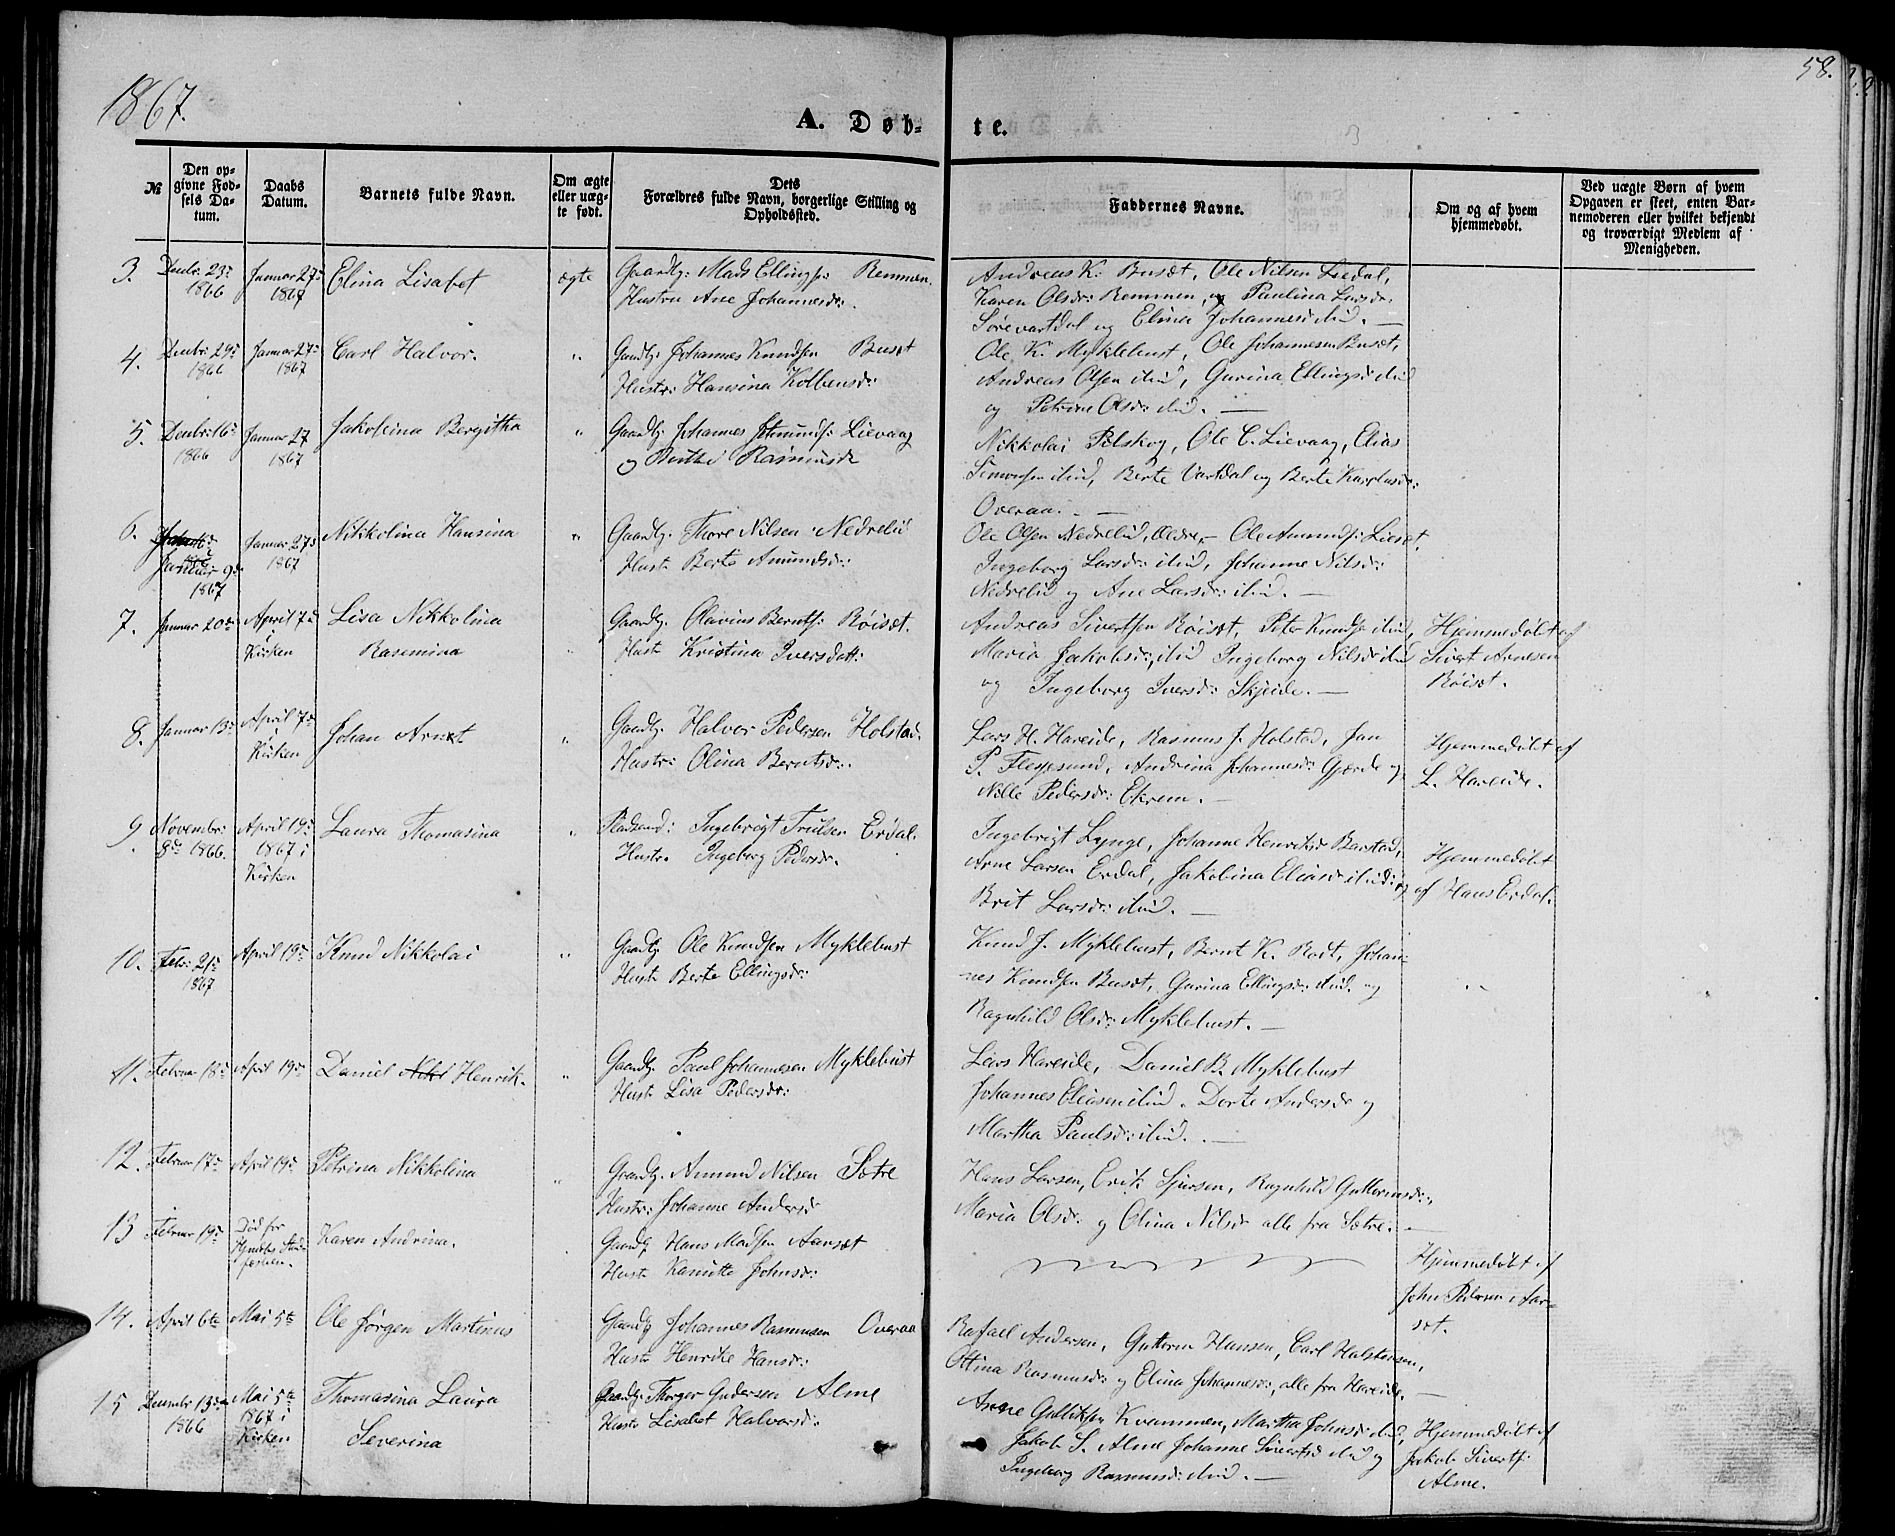 1867.
58.
A. Døb-
te.
№
Den op-
givne Fød-
sels Da-
tum.
Daabs
Datum.
Barnets fulde Navn.
Om ægte
eller uæg-
te født.
Dets
Forældres fulde Navn, borgerlige Stilling og
Opholdssted.
Faddernes Navne.
Om og af hvem
hjemmedøbt.
Ved uægte Børn af hvem
Opgaven er skeet, enten Bar-
nemoderen eller hvilket bekjendt
og troværdigt Medlem af
Menigheden.
3. Decbr: 23de Januar 27de Elina Lisabet ægte Gaardbr: Mads Ellingsn: Remmen.
1866 1867 Hustru Ane Johannesdr:
Andreas K. Buset, Ole Nilsen Liedal,
Karen Olsdr: Remmen, og Paulina Larsdr:
Sørevartdal og Elina Johannesdr ibid. —
4. Decbr: 29de Januar 27de Carl Halvor. " Gaardbr. Johannes Knudsen Buset
1866 1867 Hustr: Hansina Kolbensdr:
Ole K. Myklebust, Ole Johannesen Buset,
Andreas Olsen ibid, Gurina Ellingsdr ibid
og Petrine Olsdr: ibid. —
5. Decbr: 16de Januar 27 Jakobina Bergitha " Gaardbr. Johannes Lievaag
1866 1867 og Berthe Rasmusdr
Nikkolai Pilskog, Ole C. Lievaag, Elias
Simonsen ibid, Berte Vartdal og Berte Karolusdr:
Overaa. —
6. Januar 9de Januar 27de Nikkolina Hansina " Gaardbr. Thore Nilsen Nedrelid
1867 1867 Hust. Berte Amundsdr:
Ole Olsen Nedrelid, Ole Amundsn: Lieset,
Ingeborg Larsdr: ibid, Johanne Nilsdr:
Nedrelid og Ane Larsdr: ibid. —
7. Januar 20de April 7de Lisa Nikkolina Gaardbr. Olavius Berntsn: Røiset.
i Kirken Rasmina " Hust. Kristina Iversdatt:
Andreas Sivertsen Røiset, Peter Knudsn ibid,
Maria Jakobsdr:, ibid Ingeborg Nilsdr ibid
og Ingeborg Iversdr: Skjeide. —
Hjemmedøbt af
Sivert Arnesen
Røiset.
8. Januar 13de April 7de Johan Arnt " Gaardbr. Halvor Pedersen Holstad.
i Kirken Hustr: Olina Berntsdr:
Lars H. Hareide, Rasmus J. Holstad, Jan
P. Flesjesund, Andrina Johannesdr: Gjerde og
Nille Pedersdr: Ekrem. —
Hjemmedøbt af
L. Hareide.
9. Novembr: April 19de Laura Thomasina " Pladsmd: Ingebrigt Trulsen Erdal.
8de 1866. 1867 i Kirken Hustr. Ingeborg Pedersdr.
Ingebrigt Lynge, Johanne Henriksdr Barstad,
Arne Larsen Erdal, Jakobina Eliasdr ibid: og
Brit Larsdr: ibid. —
Hjemmedøbt
af Hans Erdal.
10. Febr: 21de April 19de Knud Nikkolai " Gaardbr Ole Knudsen Myklebust
1867 Hust. Berte Ellingsdr:
Knud J. Myklebust, Bernt K. Rødt, Johan-
nes Knudsen Buset, Gurina Ellingsdr: ibid. og
Ragnhild Olsdr: Myklebust. —
"
11. Februar 18de April 19de Daniel Henrik. " Gaardbr Paul Johannesen Myklebust
Hust. Lisa Pedersdr:
Lars Hareide, Daniel B. Myklebust
Johannes Eliasen ibid. Dorte Andersdr og
Martha Paulsdr: ibid. —
12. Februar 17de April 19de Petrina Nikkolina " Gaardbr. Amund Nilsen Sætre
Hustr: Johanne Andersdr
Hans Larsen, Erik Sjursen, Ragnhild Guttormsdr:,
Maria Olsdr: og Olina Nilsdr alle fra Sætre. —
13 Februar 19de Død før Karen Andrina. Gaardbr Hans Madsen Aarset
Hjmdbs Stad-
fæstelsen. Hust. Kanutte Johnsdr:
Hjemmedøbt af
John Pedersen Aar-
set.
14. April 6te Mai 5te Ole Jørgen Martinus Gaardbr Johannes Rasmusen Overaa
Hust. Henrike Hansdr:
Rafael Andersen, Guttorm Hansen, Carl Halstensen,
Oltina Rasmusdr: og Elina Johannesdr:, alle fra Hareide. —
15 Decembr 13de Mai 5te Thomasina Laura Gaardbr. Thorger Gudersen Alme
1866 1867 i Kirken Severina Hustr. Lisabet Halvorsdr.
Arne Gulliksen Kvammen, Martha Johnsdr ibid,
Jakob S. Alme Johanne Sivertsdr ibid og
Ingeborg Rasmusdr: ibid. —
Hjemmedøbt af
Jakob Sivertsn:
Alme.